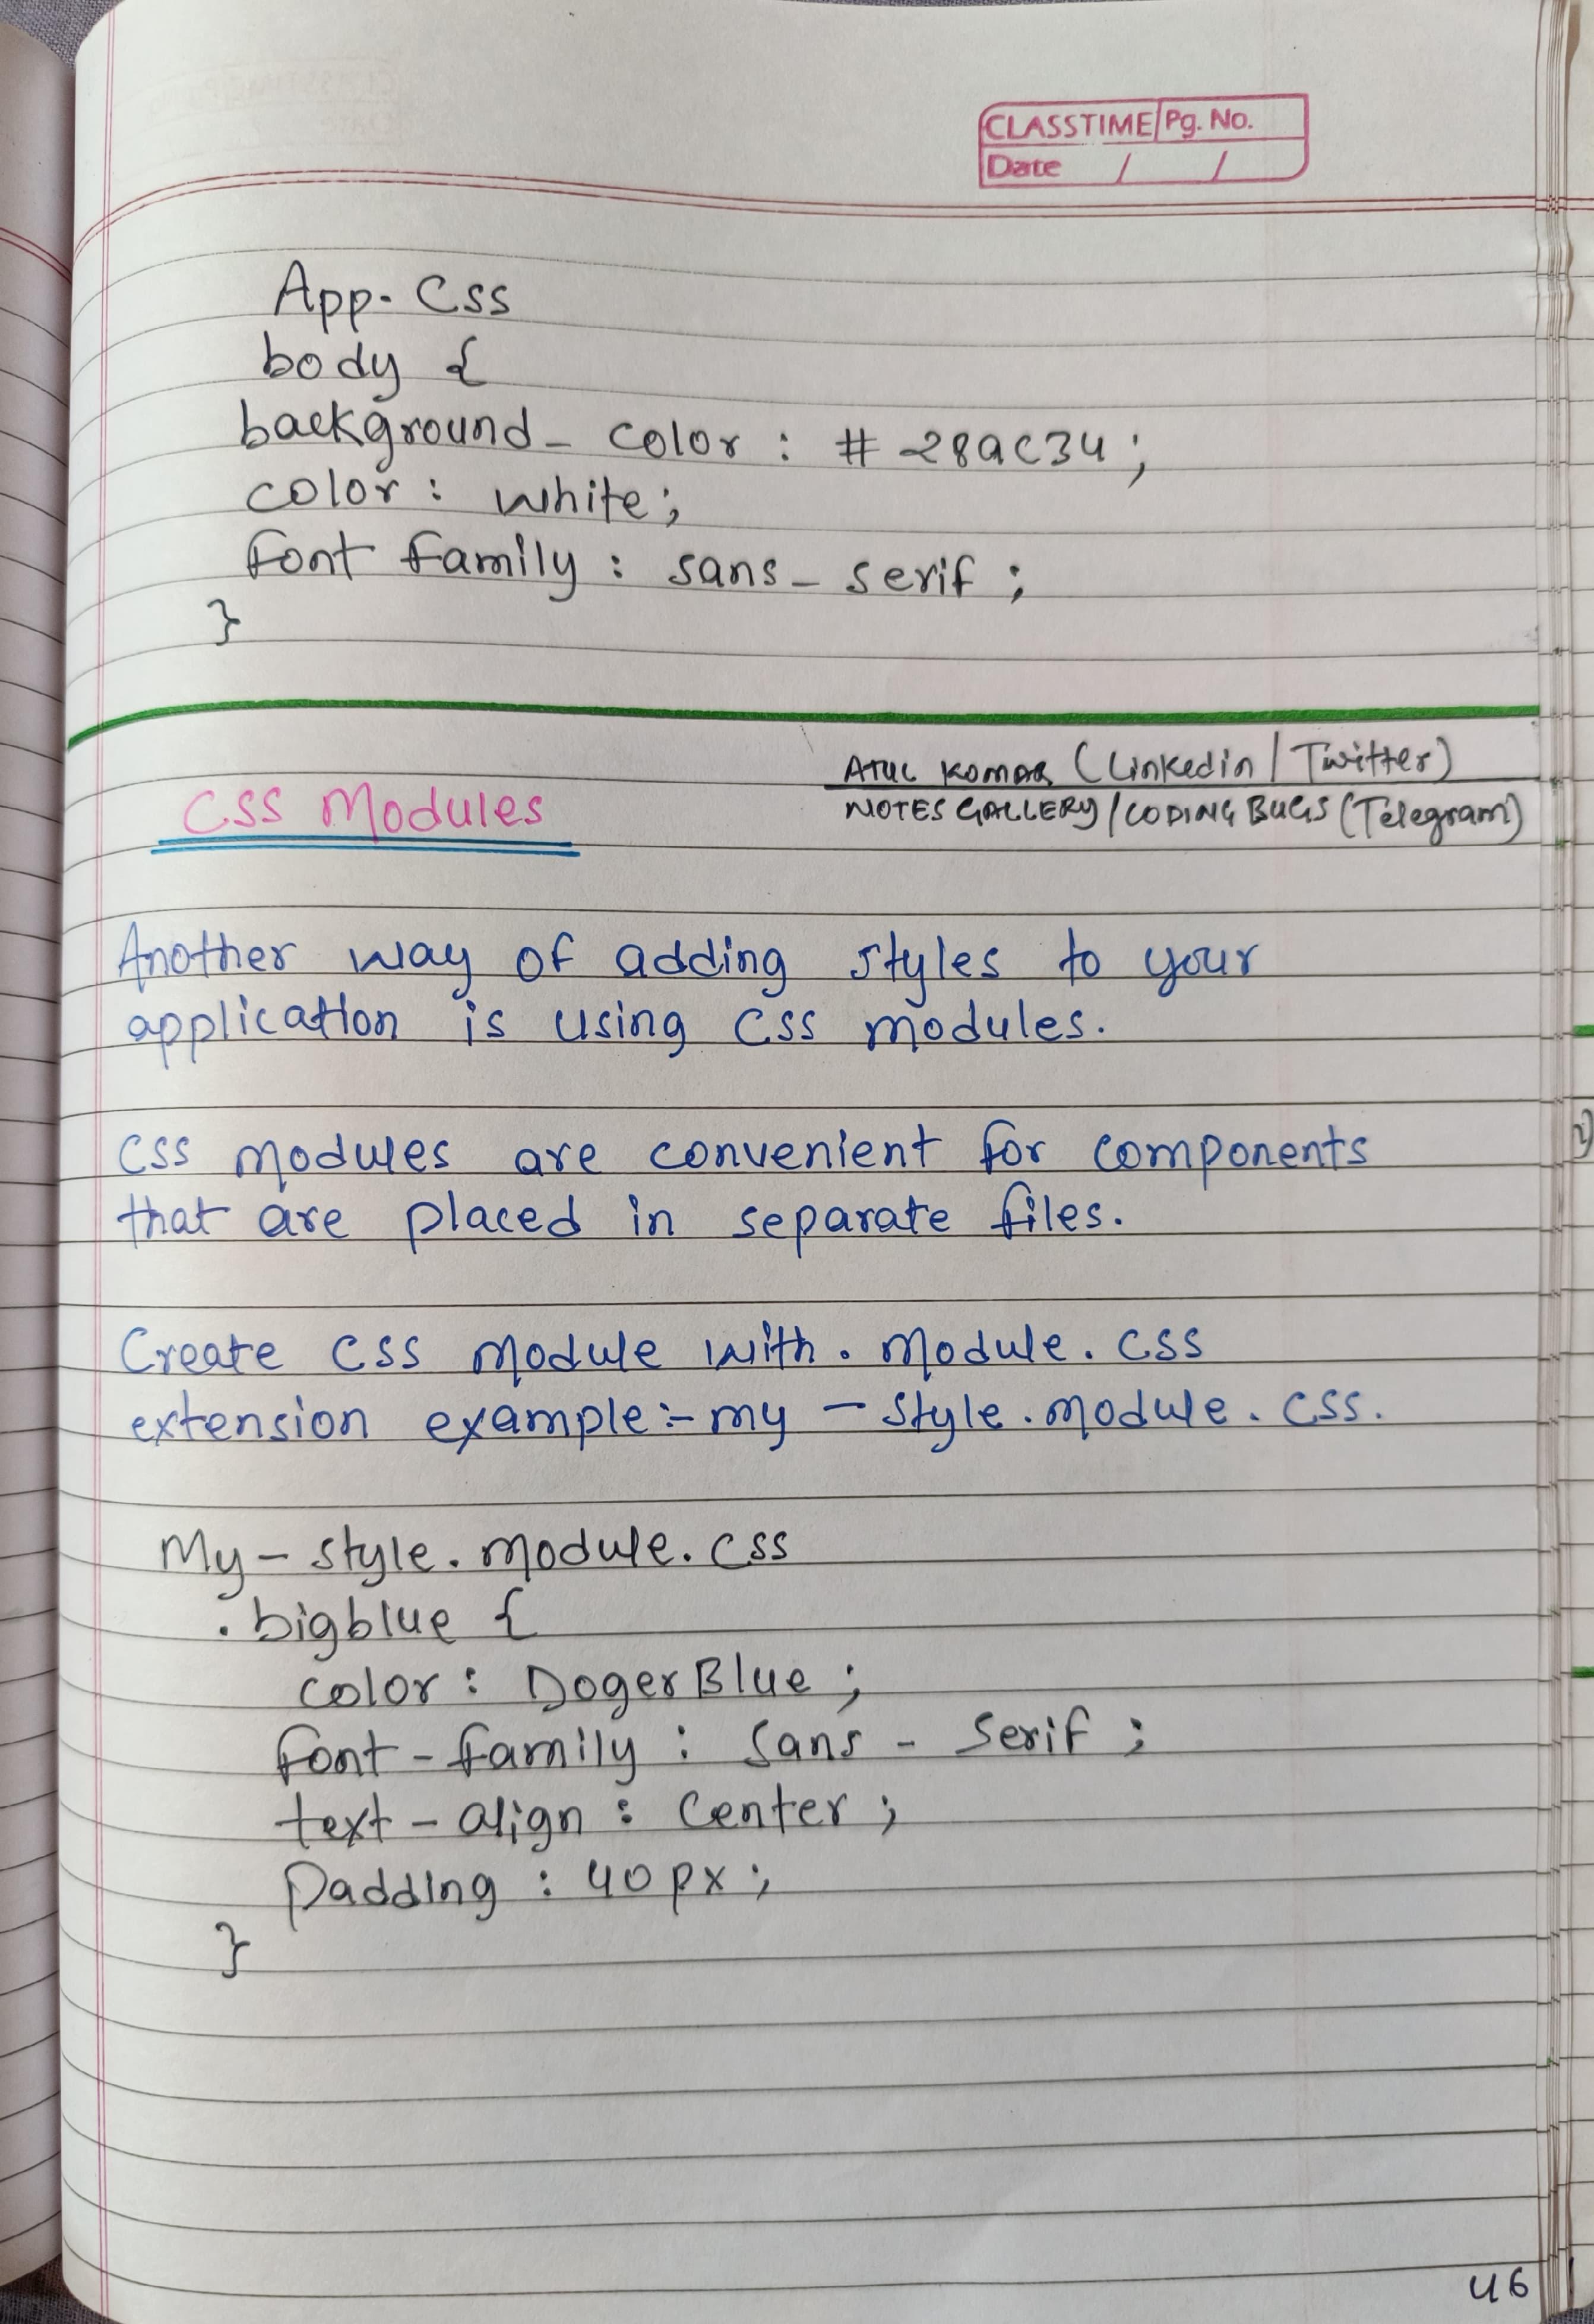 CLASSTIME Pg. No.
Date / /
App. Css
body {
background - color : # 282c34 ;
color : white ;
font family : sans - serif ;
}
ATUL KUMAR (Linkedin / Twitter)
NOTES GALLERY / CODING BUGS (Telegram)
CSS Modules
Another way of adding styles to your
application is using CSS modules.
CSS modules are convenient for components
that are placed in separate files.
Create CSS module with . module . CSS
extension example :- my - style . module . CSS .
My - style . module . CSS
. bigblue {
color : DogerBlue ;
font - family : Sans - Serif ;
text - align : Center ;
Padding : 40 px ;
}
46